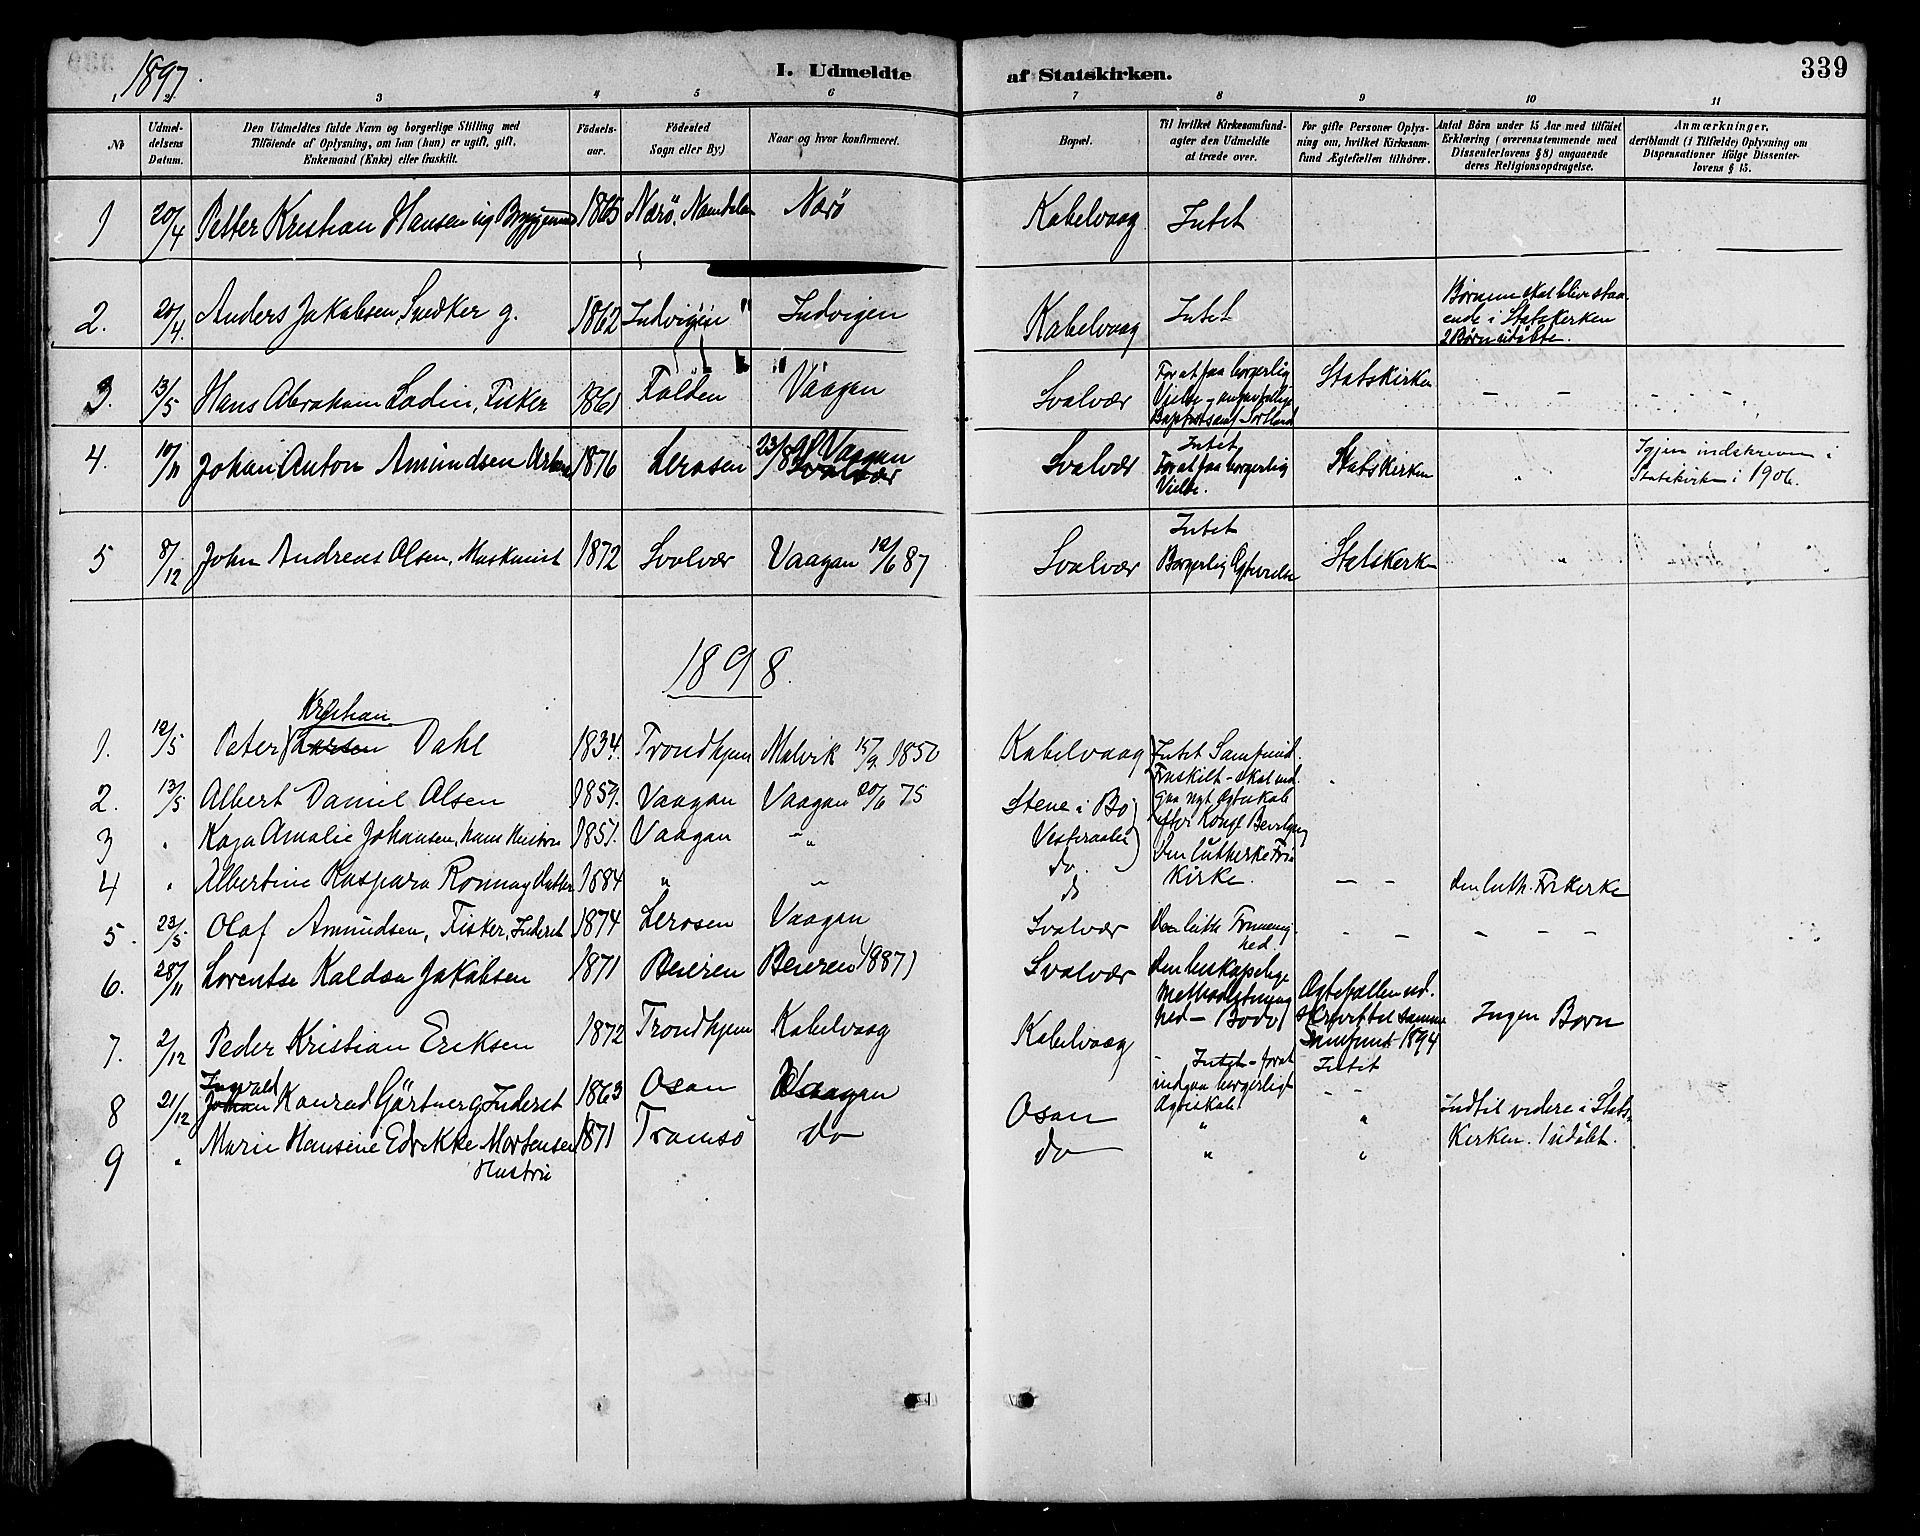 1897.
I. Udmeldte af Statskirken.
339
1 2 3 4 5 6 7 8 9 10 11
№
Udmel-
delsens
Datum.
Den Udmeldtes fulde Navn og borgerlige Stilling med
Tilföiende af Oplysning, om han (hun) er ugift, gift,
Enkemand (Enke) eller fraskilt.
Födsels-
aar.
Födested
Sogn eller By.)
Naar og hvor konfirmeret.
Bopæl.
Til hvilket Kirkesamfund-
agter den Udmeldte
at træde over.
For gifte Personer Oplys-
ning om, hvilket Kirkesam-
fund Ægtefællen tilhörer.
Antal Börn under 15 Aar med tilföiet
Erklæring (overensstemmende med
Dissenterlovens § 8) angaaende
deres Religionsopdragelse.
Anmærkninger,
deriblandt (i Tilfælde) Oplysning om
Dispensationer ifölge Dissenter-
lovens § 15.
1 20/4 Petter Kristian Hansen ug 1865 Nærö, Namdalen Nærö Kabelvaag Intet
2. 20/4. Anders Jakobsen, Snedker g. 1862 Indvigen " Indvigen Kabelvaag Intet
Börnene skal blive staa-
ende i Statskerken
2 Börn udöbte.
3. 13/5 Hans Abraham Lodin, Fisker 1861 Folden Vaagan Svalvær
For at faa borgerlig
Vielse
Baptistsamf Sortland
Statskirken – – – – –
4. 10/11 Johan Anton Amundsen 1876 Lerosen 23/8 91 Vaagan
Svalvær
Svalvær
Intet
For at faa borgerlig
Vielse.
Statskirken "
Igjen indskreven i
Statskirken i 1906.
5 8/12 John Andreas Olsen, Maskinist 1872 Svolvær Vaagan 12/6 87 Svalvær
Intet
Borgerlig
Statskerk "
1898.
Kristian
1. 12/5 Peter Larsen Dahl 1834. Trondhjem Malvik 15/9 1850 Kabelvaag Intet Samfund.
2. 13/5 Albert Daniel Olsen 1859. Vaagan Vaagan 20/6 75 Stene i Bö
Fraskilt – skal ind-
gaa nyt Ægteskab
efter Kongl Bevilgning
3 " Kaja Amalie Johansen, hans Hustru 1851. Vaagan "
Vesteraalen
do.
Den lutherske Fri
Kirke.
4 " Albertine Kaspara Datter 1884 " " do – – den luth. Frikerke
5. 23/5 Olaf Amundsen, Fisker, Inderst 1874 Lerosen Vaagan Svalvær Den luth
hed. – – – – –
6. 28/11 Lorentse Kaldsa Jakobsen 1871 Beieren Beieren (1887) Svalvær
Den biskopelige
Methodistmenig
hed – Bodö
Ægtefællen ud-
skrevet til samme
Samfund 1894
Ingen Börn
7. 2/12 Peder Kristian Eriksen 1872 Trondhjem Kabelvaag Kabelvaag
Intet – for at
indgaa borgerligt
Ægteskab.
Intet
Ingvald
8 21/12 Johan Konrad Gärtner g, Inderst 1863 Osan Vaagan Osan " "
Indtil videre i Stats-
Kerken. 1 udöbt.
9 " Marie Hansine Edrikke Mortensen 1871 Tromsö do do " "
Hustru